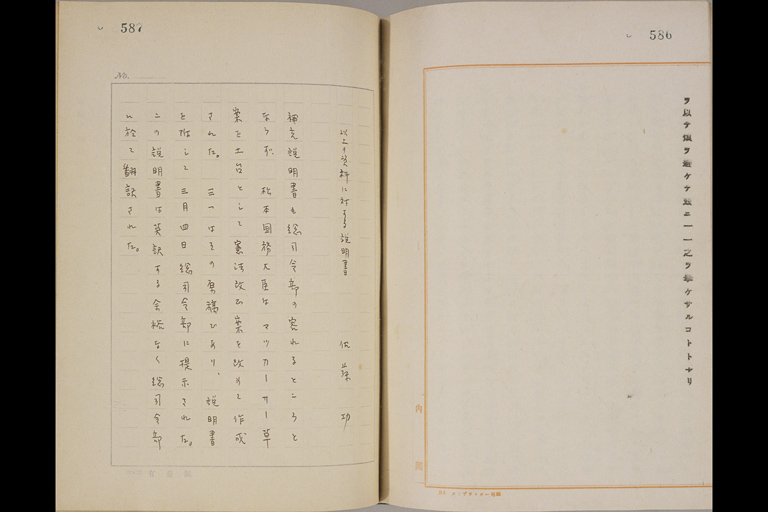 586
ヲ以テ煩ヲ避ケテ茲ニ一一之ヲ挙ケサルコトトセリ
内閣
587
No.
以上ノ資料に対する説明書
佐藤功
補充説明書も総司令部の容れるところと
ならず、松本国務大臣はマッカーサー草
案を土台として憲法改正案を改めて作成
された。三一はその原稿であり、説明書
と共にして三月四日総司令部に提示された。
この説明書は英訳する余裕なく総司令部
に於て翻訳された。